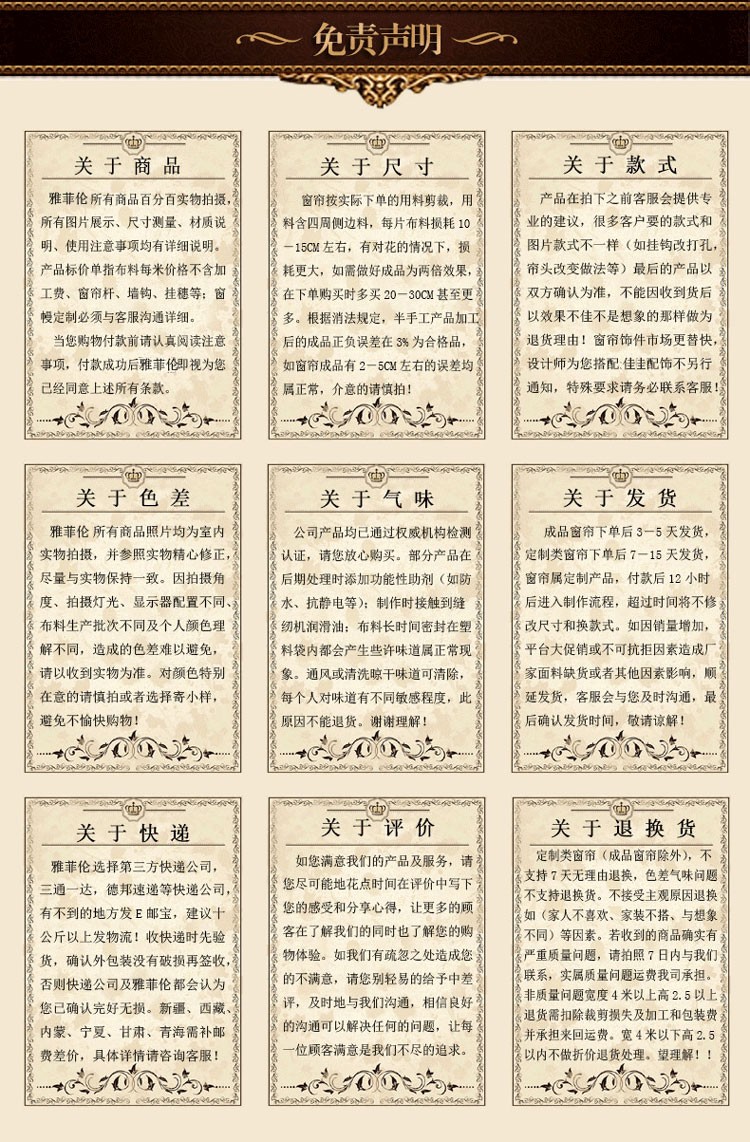 免责声明
关于商品
雅菲伦所有商品百分百实物拍摄，
所有图片展示、尺寸测量、材质说
明、使用注意事项均有详细说明。
产品标价单指布料每米价格不含加
工费、窗帘杆、墙钩、挂穗等；窗
幔定制必须与客服沟通详细。
当您购物付款前请认真阅读注意
事项，付款成功后雅菲伦即视为您
已经同意上述所有条款。
关于尺寸
窗帘按实际下单的用料剪裁，用
料含四周侧边料，每片布料损耗10
－15CM左右，有对花的情况下，损
耗更大，如需做好成品为两倍效果，
在下单购买时多买20－30CM甚至更
多。根据消法规定，半手工产品加工
后的成品正负误差在3%为合格品，
如窗帘成品有2－5CM左右的误差均
属正常，介意的请慎拍！
关于款式
产品在拍下之前客服会提供专
业的建议，很多客户要的款式和
图片款式不一样（如挂钩改打孔，
帘头改变做法等）最后的产品以
双方确认为准，不能因收到货后
以效果不佳不是想象的那样做为
退货理由！窗帘饰件市场更替快，
设计师为您搭配:佳圭配饰不另行
通知，特殊要求请务必联系客服！
关于色差
雅菲伦 所有商品照片均为室内
实物拍摄，并参照实物精心修正，
尽量与实物保持一致。因拍摄角
度、拍摄灯光、显示器配置不同、
布料生产批次不同及个人颜色理
解不同，造成的色差难以避免，
请以收到实物为准。对颜色特别
在意的请慎拍或者选择寄小样，
避免不愉快购物！
关于气味
公司产品均已通过权威机构检测
认证，请您放心购买。部分产品在
后期处理时添加功能性助剂（如防
水、抗静电等）；制作时接触到缝
纫机润滑油；布料长时间密封在塑
料袋内都会产生些许味道属正常现
象。通风或清洗晾干味道可清除，
每个人对味道有不同敏感程度，此
原因不能退货。谢谢理解！
关于发货
成品窗帘下单后3－5天发货，
定制类窗帘下单后7－15天发货，
窗帘属定制产品，付款后12小时
后进入制作流程，超过时间将不修
改尺寸和换款式。如因销量增加，
平台大促销或不可抗拒因素造成厂
家面料缺货或者其他因素影响，顺
延发货，客服会与您及时沟通，最
后确认发货时间，敬请谅解！
关于快递
雅菲伦选择第三方快递公司，
三通一达，德邦速递等快递公司，
有不到的地方发E邮宝，建议十
公斤以上发物流！收快递时先验
货，确认外包装没有破损再签收，
否则快递公司及雅菲伦都会认为
您已确认完好无损。新疆、西藏、
内蒙、宁夏、甘肃、青海需补邮
费差价，具体详情请咨询客服！
关于评价
如您满意我们的产品及服务，请
您尽可能地花点时间在评价中写下
您的感受和分享心得，让更多的顾
客在了解我们的同时也了解您的购
物体验。如我们有疏忽之处造成您
的不满意，请您别轻易的给予中差
评，及时地与我们沟通，相信良好
的沟通可以解决任何的问题，让每
一位顾客满意是我们不尽的追求。
关于退换货
定制类窗帘（成品窗帘除外），不
支持7天无理由退换，色差气味问题
不支持退换货。不接受主观原因退换
如（家人不喜欢、家装不搭、与想象
不同）等因素。若收到的商品确实有
严重质量问题，请拍照7日内与我们
联系，实属质量问题运费我司承担。
非质量问题宽度4米以上高2.5以上
退货需扣除裁剪损失及加工和包装费
并承担来回运费。宽4米以下高2.5
以内不做折价退货处理。望理解！！